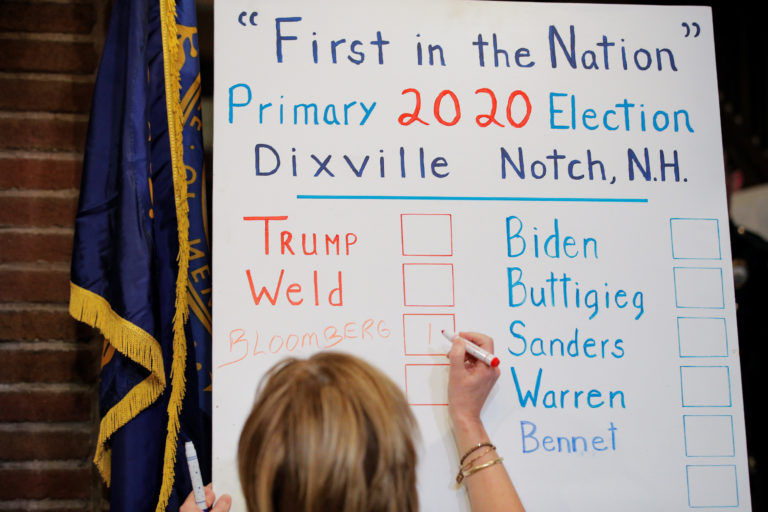 "First in the Nation"
Primary 2020 Election
Dixville Notch, N.H.
TRUMP
Weld
BLOOMBERG 1
Biden
Buttigieg
Sanders
Warren
Bennet